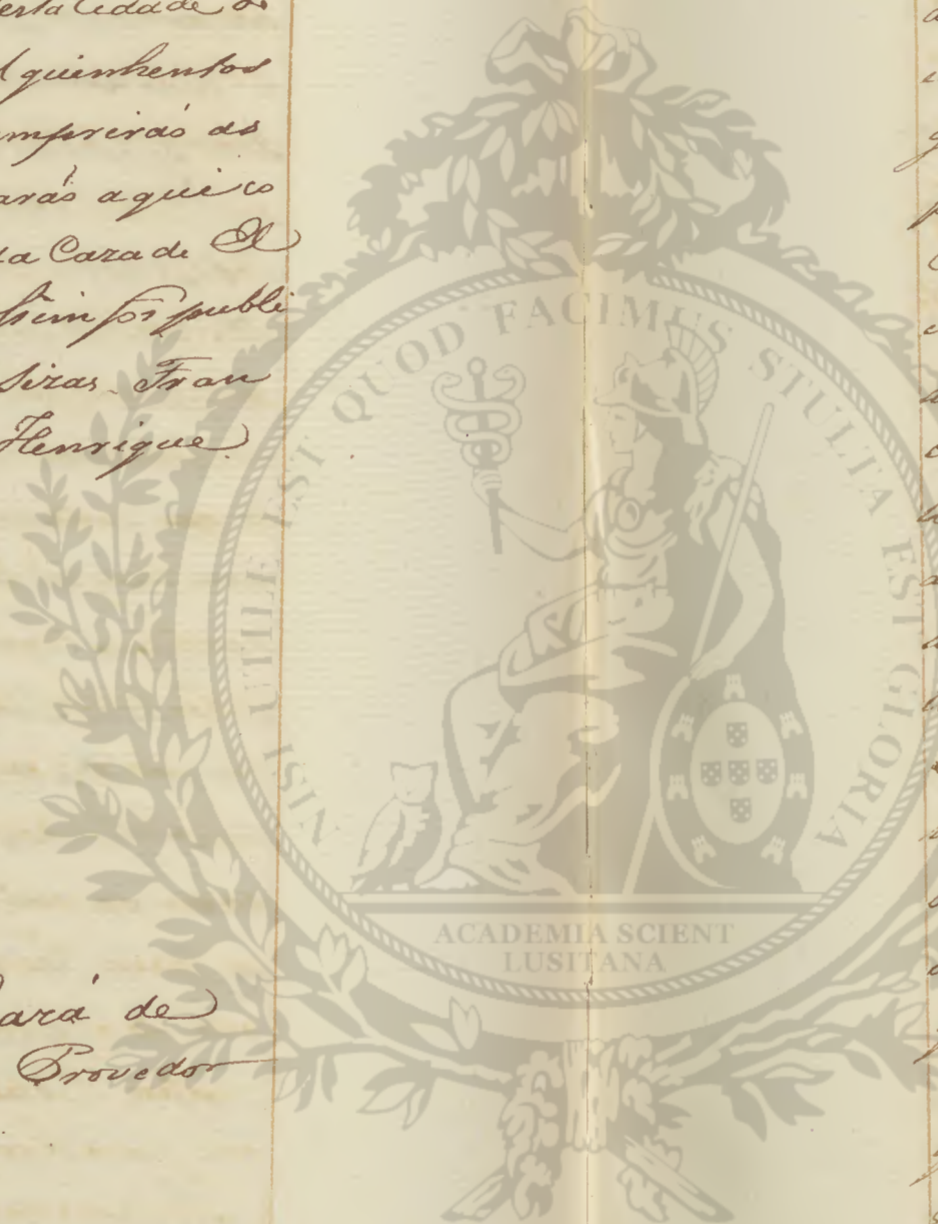 esta Cidade de
l quinhentos
mprirás as
arás aqui co
a Caza de El
sim foi publi
Sizas Fran
Henrique
ará de
Provedor
NISI UTILE EST QUOD FACIMUS STULTA EST GLORIA
ACADEMIA SCIENT
LUSITANA